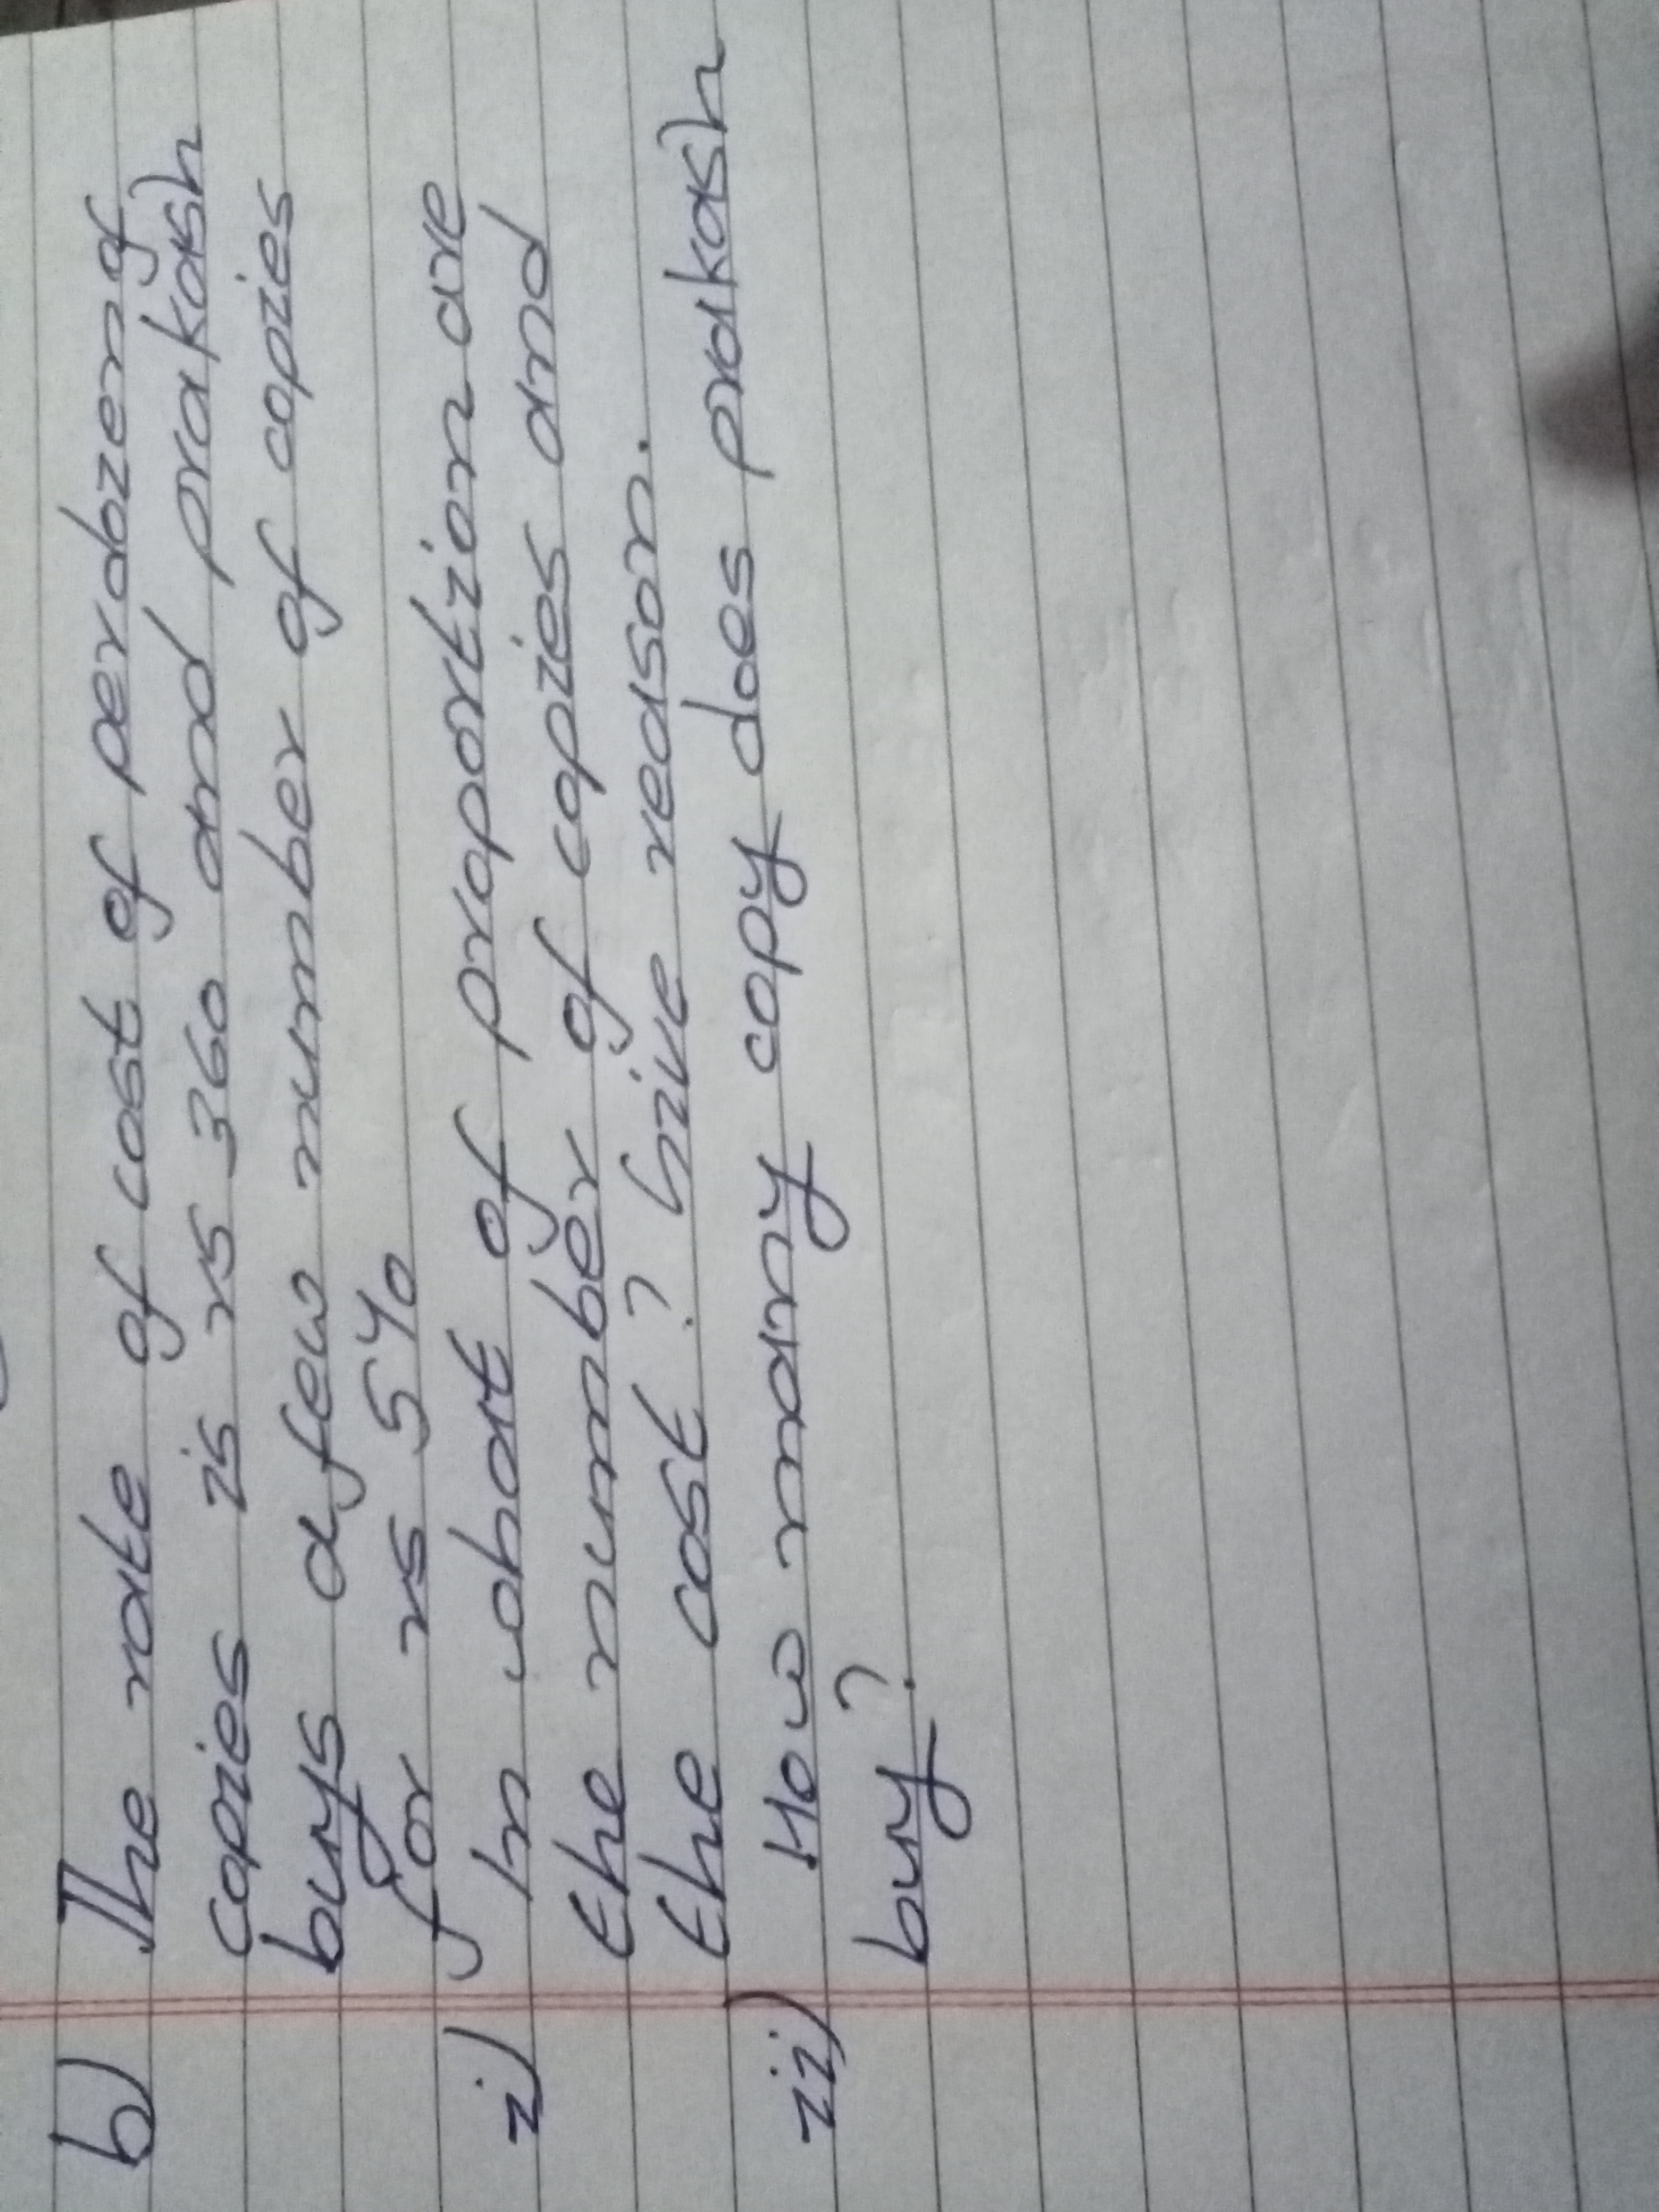 b) The rate of cost of perdozen of
copies is rs 360 and prakash
buys a few number of copies
for rs 540
i) In what of proportion are
the number of copies and
the cost? Give reason.
ii) How many copy does prakash
buy?